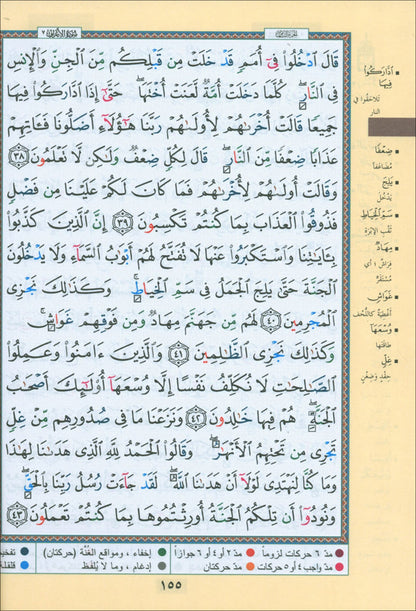 سُورَةُ الأَعْرَافِ ٧
قَالَ ٱدْخُلُوا۟ فِىٓ أُمَمٍ قَدْ خَلَتْ مِن قَبْلِكُم مِّنَ ٱلْجِنِّ وَٱلْإِنسِ
فِى ٱلنَّارِ ۖ كُلَّمَا دَخَلَتْ أُمَّةٌ لَّعَنَتْ أُخْتَهَا ۖ حَتَّىٰٓ إِذَا ٱدَّارَكُوا۟ فِيهَا
جَمِيعًا قَالَتْ أُخْرَىٰهُمْ لِأُولَىٰهُمْ رَبَّنَا هَٰٓؤُلَآءِ أَضَلُّونَا فَـَٔاتِهِمْ
عَذَابًا ضِعْفًا مِّنَ ٱلنَّارِ ۖ قَالَ لِكُلٍّ ضِعْفٌ وَلَٰكِن لَّا تَعْلَمُونَ ٣٨
وَقَالَتْ أُولَىٰهُمْ لِأُخْرَىٰهُمْ فَمَا كَانَ لَكُمْ عَلَيْنَا مِن فَضْلٍ
فَذُوقُوا۟ ٱلْعَذَابَ بِمَا كُنتُمْ تَكْسِبُونَ ٣٩ إِنَّ ٱلَّذِينَ كَذَّبُوا۟
بِـَٔايَٰتِنَا وَٱسْتَكْبَرُوا۟ عَنْهَا لَا تُفَتَّحُ لَهُمْ أَبْوَٰبُ ٱلسَّمَآءِ وَلَا يَدْخُلُونَ
ٱلْجَنَّةَ حَتَّىٰ يَلِجَ ٱلْجَمَلُ فِى سَمِّ ٱلْخِيَاطِ ۚ وَكَذَٰلِكَ نَجْزِى
ٱلْمُجْرِمِينَ ٤٠ لَهُم مِّن جَهَنَّمَ مِهَادٌ وَمِن فَوْقِهِمْ غَوَاشٍ ۚ
وَكَذَٰلِكَ نَجْزِى ٱلظَّٰلِمِينَ ٤١ وَٱلَّذِينَ ءَامَنُوا۟ وَعَمِلُوا۟
ٱلصَّٰلِحَٰتِ لَا نُكَلِّفُ نَفْسًا إِلَّا وُسْعَهَآ أُو۟لَٰٓئِكَ أَصْحَٰبُ
ٱلْجَنَّةِ ۖ هُمْ فِيهَا خَٰلِدُونَ ٤٢ وَنَزَعْنَا مَا فِى صُدُورِهِم مِّنْ غِلٍّ
تَجْرِى مِن تَحْتِهِمُ ٱلْأَنْهَٰرُ ۖ وَقَالُوا۟ ٱلْحَمْدُ لِلَّهِ ٱلَّذِى هَدَىٰنَا لِهَٰذَا
وَمَا كُنَّا لِنَهْتَدِىَ لَوْلَآ أَنْ هَدَىٰنَا ٱللَّهُ ۖ لَقَدْ جَآءَتْ رُسُلُ رَبِّنَا بِٱلْحَقِّ ۖ
وَنُودُوٓا۟ أَن تِلْكُمُ ٱلْجَنَّةُ أُورِثْتُمُوهَا بِمَا كُنتُمْ تَعْمَلُونَ ٤٣
ادّارَكُوا
فِيهَا
تلاحقُوا في
النار
ضِعْفًا
مُضَاعَفًا
يَلِجَ
يَدْخُلَ
سَمِّ الْخِيَاطِ
ثَقْبِ الإبْرَةِ
مِهَادٌ
فِرَاشٌ؛ أي
مُسْتَقَرٌّ
غَوَاشٍ
أغْطِيَةٌ كاللُّحُفِ
وُسْعَهَا
طاقَتَهَا
غِلٍّ
حِقْدٍ وَضِغْنٍ
مدّ ٦ حركات لزوماً مدّ ٢ أو ٤ أو ٦ جوازاً إخفاء، ومواقع الغُنَّة (حركتان) تفخيم
مدّ واجب ٤ أو ٥ حركات مدّ حركتان إدغام، وما لا يُلفَظ قلقلة
١٥٥